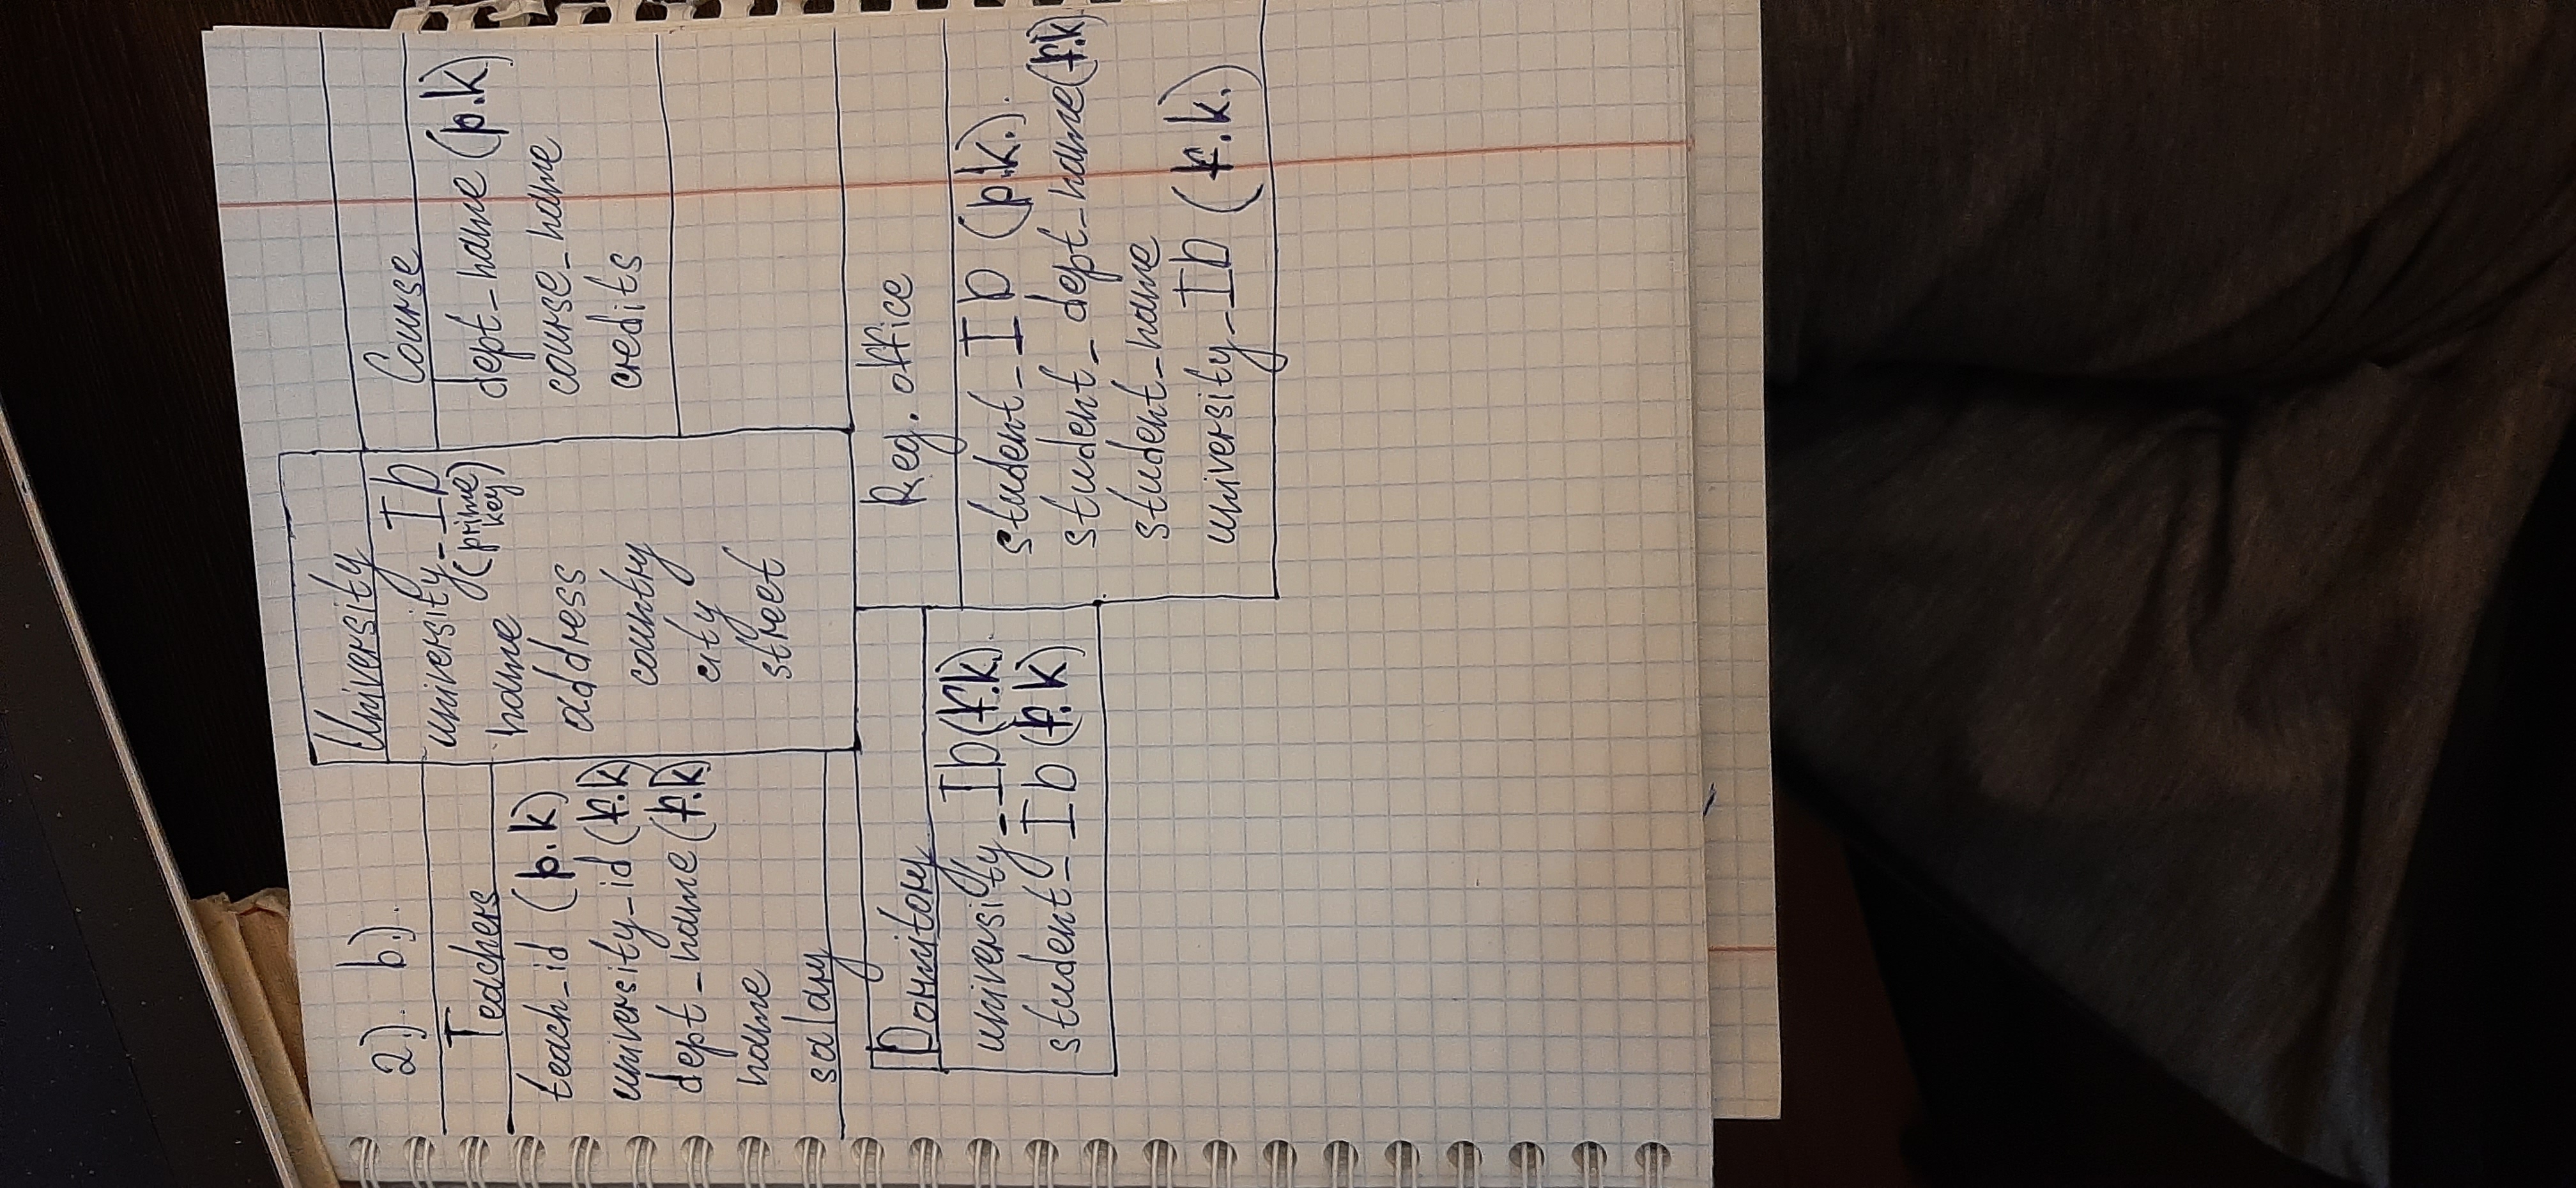 2). b).
Teachers
teach_id (p.k)
university_id (f.k)
dept_name (f.k)
name
salary
University
university_ID
(prime
key)
name
address
country
city
street
Course
dept_name (p.k)
course_name
credits
Dormitory
university_ID (f.k).
student_ID (f.k)
Reg. office
student_ID (p.k.).
student_dept_name (f.k).
student_name
university_ID (f.k.)